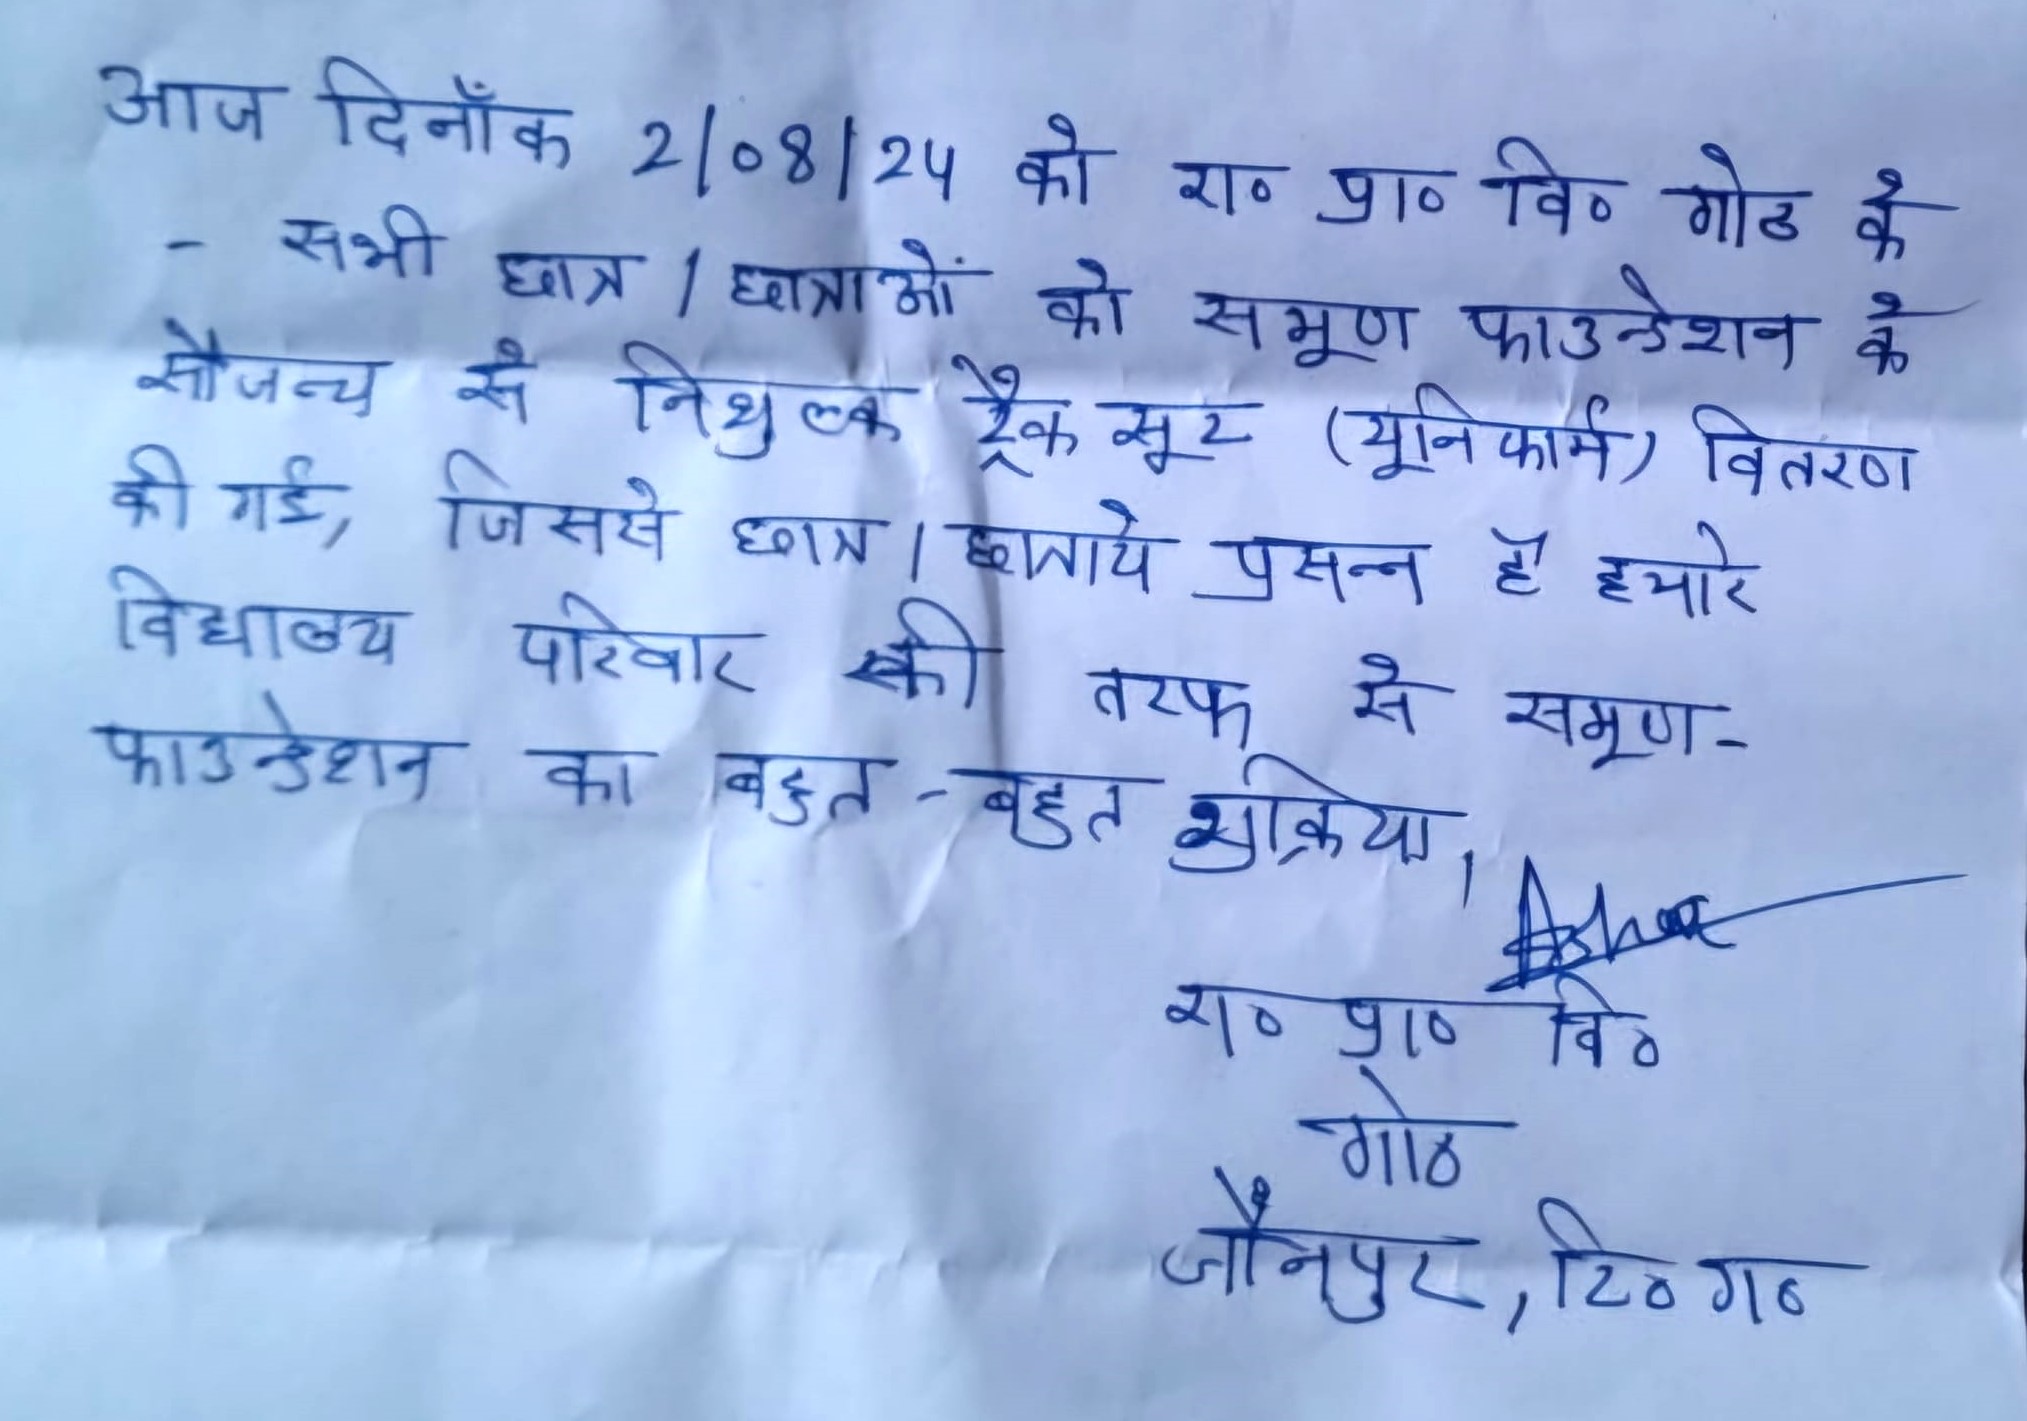 आज दिनाँक 2/08/24 को रा० प्रा० वि० गोठ के
- सभी छात्र / छात्राओं को समूण फाउन्डेशन के
सौजन्य से निशुल्क ट्रैक सूट (यूनिफार्म) वितरण
की गई, जिससे छात्र / छात्राये प्रसन्न हैं हमारे
विद्यालय परिवार की तरफ से समूण-
फाउन्डेशन का बहुत - बहुत शुक्रिया,
रा० प्रा० वि०
गोठ
जौनपुर, टि० ग०